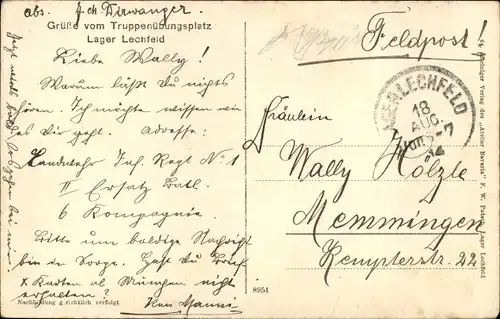 abs. J. ch. Dirwanger.
Grüße vom Truppenübungsplatz
Lager Lechfeld
Liebe Wally!
Warum läßt Du nichts
hören. Ich möchte wissen wie
es Dir geht. Adresse:
Landwehr Inf. Regt No 1
II Ersatz Batl.
6 Kompagnie.
Bitte um baldige Nachricht
bin in Sorge. Hast du Brief
x Karten aus München nicht
erhalten?
Nachbildung gerichtlich verfolgt
8951
Feldpost!
LAGER LECHFELD
18
AUG.
14
Fräulein
Wally Hölzle
Memmingen
Kempterstr. 22
Verlag des „Atelier Bavaria" F. W. Lager Lechfeld